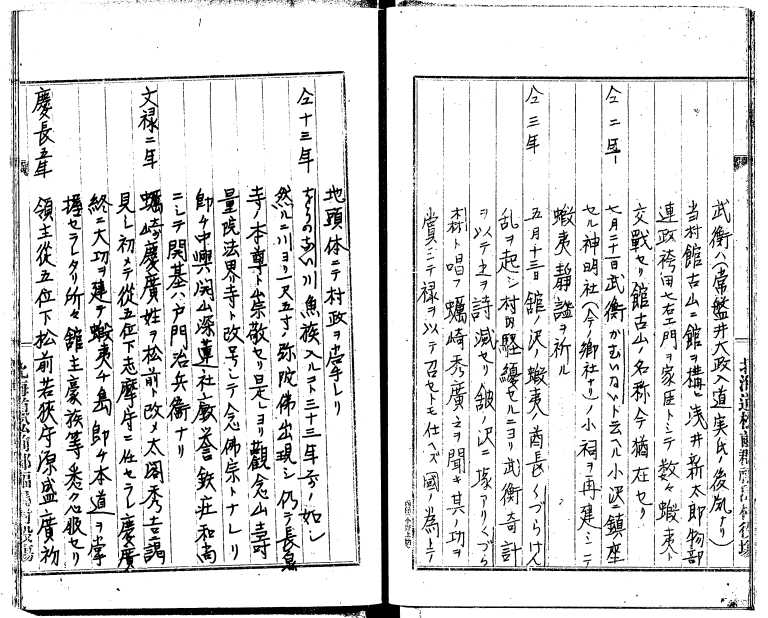 武衡ハ(常盤井大政入道実氏ノ後胤ナリ
当村館古山ニ館ヲ構ヘ浅井新太郎物部
連政袴田七右エ門ヲ家臣トシテ数々蝦夷ト
交戦セリ館古山ノ名称今猶在セリ
仝二年 七月二十一日武衡かむいないト云ヘル小沢ニ鎮座
セル神明社(今ノ郷社ナリ)ノ小祠ヲ再建シテ
蝦夷静謐ヲ祈ル
仝三年 五月十三日舘ノ沢ノ蝦夷酋長くづらけん
乱ヲ起シ村内騒擾セルニヨリ武衡奇計
ヲ以テ之ヲ討滅セリ舘ノ沢ニ塚アリくづら
森ト唱フ蠣崎秀廣之ヲ聞キ其ノ功ヲ
賞シテ禄ヲ以テ召セトモ仕ヘズ國ノ為ニテ
北海道松前郡福島村役場
地頭体ニテ村政ヲ掌手レリ
仝十三年 魚族入ルコト三十三年
然ルニ川ヨリ一尺五寸ノ弥陀佛出現シ仍テ長泉
寺ノ本尊ト崇敬セリ是レヨリ観念山寿
量院法界寺ト改号シテ念佛宗トナレリ
即チ中興開山深蓮社厳誉鉄荘和尚
ニシテ開基ハ戸門治兵衛ナリ
文禄二年 蠣崎慶廣姓ヲ松前ト改メ太閤秀吉謁
見シ初メテ從五位下志摩守ニ任セラレ慶廣
終ニ大功ヲ建テ蝦夷チ島即チ本道ヲ掌
握セラレタリ所々舘主豪族等悉ク心服セリ
慶長五年 領主從五位下松前若狭守源盛廣初
北海道松前郡福島村役場